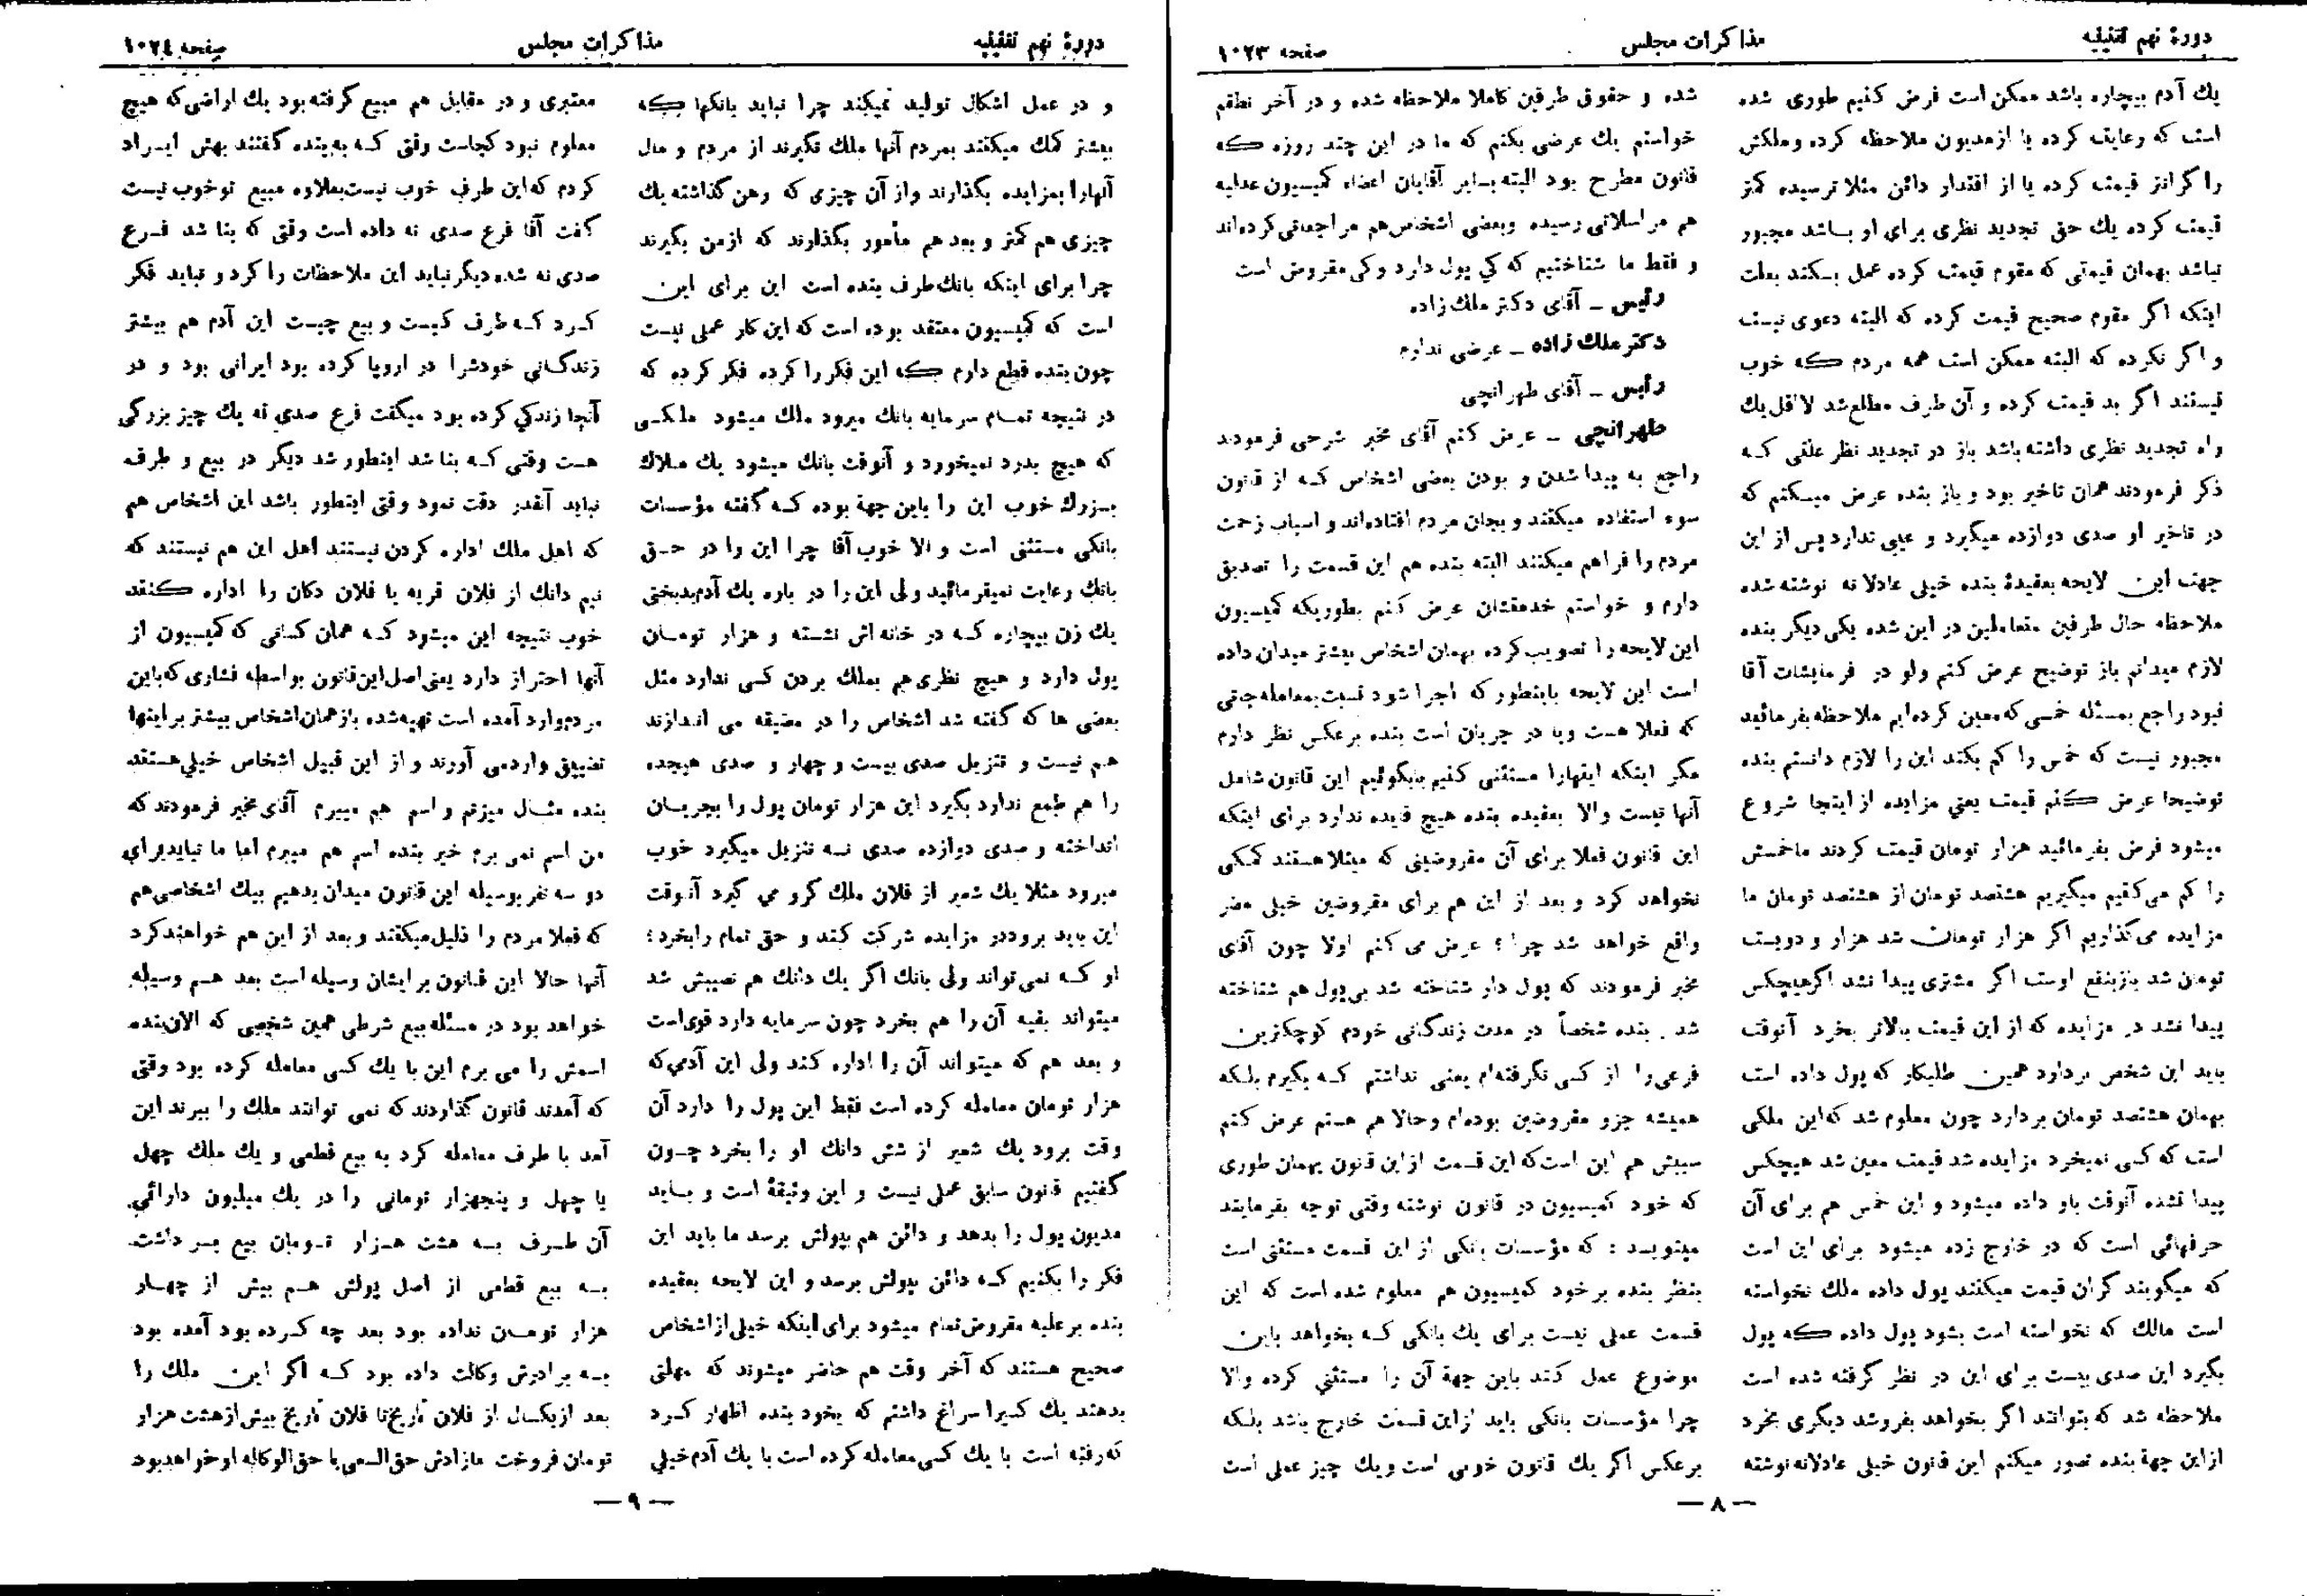 دورهٔ نهم تقنینیه
مذاکرات مجلس
صفحه ۱۰۲۳
یك آدم بیچاره باشد ممکن است فرض کنیم طوری شده
است که رعایت کرده یا از مدیون ملاحظه کرده و ملکش
را گرانتر قیمت کرده یا از اقتدار دائن مثلا ترسیده کمتر
قیمت کرده یك حق تجدید نظری برای او بـاشد مجبور
نباشد بهمان قیمتی که مقوم قیمت کرده عمل بـکند بعلت
اینکه اگر مقوم صحیح قیمت کرده که البته دعوی نیست
و اگر نکرده که البته ممکن است همه مردم که خوب
نیستند اگر بد قیمت کرده و آن طرف مطلع شد لااقل یك
راه تجدید نظری داشته باشد باز در تجدید نظر علتی کـه
ذکر فرمودند همان تاخیر بود و باز بنده عرض میـکنم که
در تاخیر او صدی دوازده میگیرد و عیبی ندارد پس از این
جهت این لایحه بعقیدهٔ بنده خیلی عادلانه نوشته شده
ملاحظه حال طرفین متعاملین در این شده یکی دیگر بنده
لازم میدانم باز توضیح عرض کنم ولو در فرمایشات آقا
نبود راجع بمسئله خمسی که معین کرده‌ایم ملاحظه بفرمائید
مجبور نیست که خمس را کم بکند این را لازم دانستم بنده
توضیحا عرض کنم قیمت یعنی مزایده از اینجا شروع
میشود فرض بفرمائید هزار تومان قیمت کردند ما خمسش
را کم می‌کنیم میگیریم هشتصد تومان از هشتصد تومان ما
مزایده می‌گذاریم اگر هزار تومان شد هزار و دویست
تومان شد باز بنفع اوست اگر مشتری پیدا نشد اگر هیچکس
پیدا نشد در مزایده که از این قیمت بالاتر بخرد آنوقت
باید این شخص بردارد همین طلبکار که پول داده است
بهمان هشتصد تومان بردارد چون معلوم شد که این ملکی
است که کسی نمیخرد مزایده شد قیمت معین شد هیچکس
پیدا نشده آنوقت باو داده میشود و این خمس هم برای آن
حرفهائی است که در خارج زده میشود برای این است
که میگویند گران قیمت میکنند پول داده ملك نخواسته
است مالك که نخواسته است بشود پول داده که پول
بگیرد این صدی بیست برای این در نظر گرفته شده است
ملاحظه شد که بتوانند اگر بخواهد بفروشد دیگری بخرد
از این جهة بنده تصور میکنم این قانون خیلی عادلانه نوشته
شده و حقوق طرفین کاملا ملاحظه شده و در آخر نطقم
خواستم یك عرضی بکنم که ما در این چند روزه که
قانون مطرح بود البته بسایر آقایان اعضاء کمیسیون عدلیه
هم مراسلاتی رسیده و بعضی اشخاص هم مراجعاتی کرده‌اند
و فقط ما شناختیم که کی پول دارد و کی مقروض است
رئیس ـ آقای دکتر ملك زاده
دکتر ملك زاده ـ عرضی ندارم
رئیس ـ آقای طهرانچی
طهرانچی ـ عرض کنم آقای مخبر شرحی فرمودند
راجع به پیدا شدن و بودن بعضی اشخاص کـه از قانون
سوء استفاده میکنند و بجان مردم افتاده‌اند و اسباب زحمت
مردم را فراهم میکنند البته بنده هم این قسمت را تصدیق
دارم و خواستم خدمتتان عرض کنم بطوریکه کمیسیون
این لایحه را تصویب کرده بهمان اشخاص بیشتر میدان داده
است این لایحه باینطور که اجرا شود نسبت بمعامله‌جاتی
که فعلا هست و یا در جریان است بنده برعکس نظر دارم
مگر اینکه اینهارا مستثنی کنیم یا بگوئیم این قانون شامل
آنها نیست والا بعقیده بنده هیچ فایده ندارد برای اینکه
این قانون فعلا برای آن مقروضینی که مبتلا هستند کمکی
نخواهد کرد و بعد از این هم برای مقروضین خیلی مضر
واقع خواهد شد چرا ؟ عرض می کنم اولا چون آقای
مخبر فرمودند که پول دار شناخته شد بی‌پول هم شناخته
شد . بنده شخصاً در مدت زندگانی خودم کوچکترین
فرعی را از کسی نگرفته‌ام یعنی نداشتم کـه بگیرم بلـکه
همیشه جزو مقروضین بوده‌ام و حالا هم هستم عرض کنم
سببش هم این است که این قسمت از این قانون بهمان طوری
که خود کمیسیون در قانون نوشته وقتی توجه بفرمایند
مینویسد : که مؤسسات بانکی از این قسمت مستثنی است
بنظر بنده بر خود کمیسیون هم معلوم شده است که این
قسمت عملی نیست برای یك بانکی کـه بخواهد باین
موضوع عمل کند باین جهة آن را مستثنی کرده والا
چرا مؤسسات بانکی باید از این قسمت خارج باشد بلـکه
برعکس اگر یك قانون خوبی است و یك چیز عملی است
— ۸ —
دورهٔ نهم تقنینیه
مذاکرات مجلس
صفحه ۱۰۲٤
و در عمل اشکال تولید نمیکند چرا نباید بانکها که
بیشتر کمك میکنند بمردم آنها ملك نگیرند از مردم و مال
آنهارا بمزایده بگذارند و از آن چیزی که رهن گذاشته یك
چیزی هم کمتر و بعد هم مأمور بگذارند که از من بگیرند
چرا برای اینکه بانك طرف بنده است این برای این
است که کمیسیون معتقد بوده است که این کار عملی نیست
چون بنده قطع دارم که این فکر را کرده فکر کرده که
در نتیجه تمـام سرمایه بانك میرود ملك میشود ملکـی
که هیچ بدرد نمیخورد و آنوقت بانك میشود یك ملاك
بـزرك خوب این را باین جهة بوده کـه گفته مؤسسات
بانکی مستثنی است و الا خوب آقا چرا این را در حـق
بانك رعایت نمیفرمائید ولی این را در باره یك آدم بدبختی
یك زن بیچاره کـه در خانه‌اش نشسته و هزار تومـان
پول دارد و هیچ نظری هم بملك بردن کسی ندارد مثل
بعضی ها که گفته شد اشخاص را در مضیقه می انـدازند
هـم نیست و تنزیل صدی بیست و چهار و صدی هیجده
را هم طمع ندارد بگیرد این هزار تومان پول را بجریـان
انداخته و صدی دوازده صدی نـه تنزیل میگیرد خوب
میرود مثلا یك شعیر از فلان ملك گرو می گیرد آنوقت
این باید برود در مزایده شرکت کند و حق تمام را بخرد؛
او کـه نمی‌تواند ولی بانك اگر یك دانك هم نصیبش شد
میتواند بقیه آن را هم بخرد چون سرمایه دارد قوی است
و بعد هم که میتواند آن را اداره کند ولی این آدمی که
هزار تومان معامله کرده است فقط این پول را دارد آن
وقت برود یك شعیر از شش دانك او را بخرد چـون
گفتیم قانون سابق عملی نیست و این وثیقهٔ است و بـاید
مدیون پول را بدهد و دائن هم بپولش برسد ما باید این
فکر را بکنیم کـه دائن بپولش برسد و این لایحه بعقیده
بنده بر علیه مقروض تمام میشود برای اینکه خیلی از اشخاص
صحیح هستند که آخر وقت هم حاضر میشوند که مهلتی
بدهند یك کسی را سراغ داشتم که بخود بنده اظهار کـرد
که رفته است با یك کسی معامله کرده است با یك آدم خیلی
معتبری و در مقابل هم مبیع گرفته بود یك اراضی که هیچ
معلوم نبود کجاست وقتی کـه به بنده گفتند بهش ایـراد
کردم که این طرف خوب نیست بعلاوه مبیع تو خوب نیست
گفت آقا فرع صدی نه داده است وقتی که بنا شد فـرع
صدی نه شده دیگر نباید این ملاحظات را کرد و نباید فکر
کـرد کـه طرف کیست و بیع چیست این آدم هم بیشتر
زندگـانی خودشرا در اروپا کرده بود ایرانی بود و در
آنجا زندگی کرده بود میگفت فرع صدی نه یك چیز بزرگی
هست وقتی کـه بنا شد اینطور شد دیگر در بیع و طرف
نباید آنقدر دقت نمود وقتی اینطور باشد این اشخاص هم
که اهل ملك اداره کردن نیستند اهل این هم نیستند که
نیم دانك از فلان قریه یا فلان دکان را اداره کنند
خوب نتیجه این میشود کـه همان کسانی که کمیسیون از
آنها احتراز دارد یعنی اصل این قانون بواسطه فشاری که باین
مردم وارد آمده است تهیه شده باز همان اشخاص بیشتر بر اینها
تضییق وارد می آورند و از این قبیل اشخاص خیلی هستند
بنده مثـال میزنم و اسم هم میبرم آقای مخبر فرمودند که
من اسم نمی برم خیر بنده اسم هم میبرم اما ما نباید برای
دو سه نفر بوسیله این قانون میدان بدهیم بیك اشخاصی هم
که فعلا مردم را ذلیل میکنند و بعد از این هم خواهند کرد
آنها حالا این قـانون برایشان وسیله است بعد هـم وسیله
خواهد بود در مسئله بیع شرطی همین شخصی که الان بنده
اسمش را می برم این با یك کسی معامله کرده بود وقتی
که آمدند قانون گذاردند که نمی توانند ملك را ببرند این
آمد با طرف معامله کرد به بیع قطعی و یك ملك چهل
یا چهل و پنجهزار تومانی را در یك میلیون دارائی
آن طـرف بـه هشت هـزار تـومان بیع بـر داشت
بـه بیع قطعی از اصل پولش هـم بیش از چهـار
هزار تومـان نداده بود بعد چه کـرده بود آمده بود
بـه برادرش وکالت داده بود کـه اگر این ملك را
بعد از یکسال از فلان تاریخ تا فلان تاریخ بیش از هشت هزار
تومان فروخت مازادش حق السعی یا حق الوکاله او خواهد بود
— ۹ —